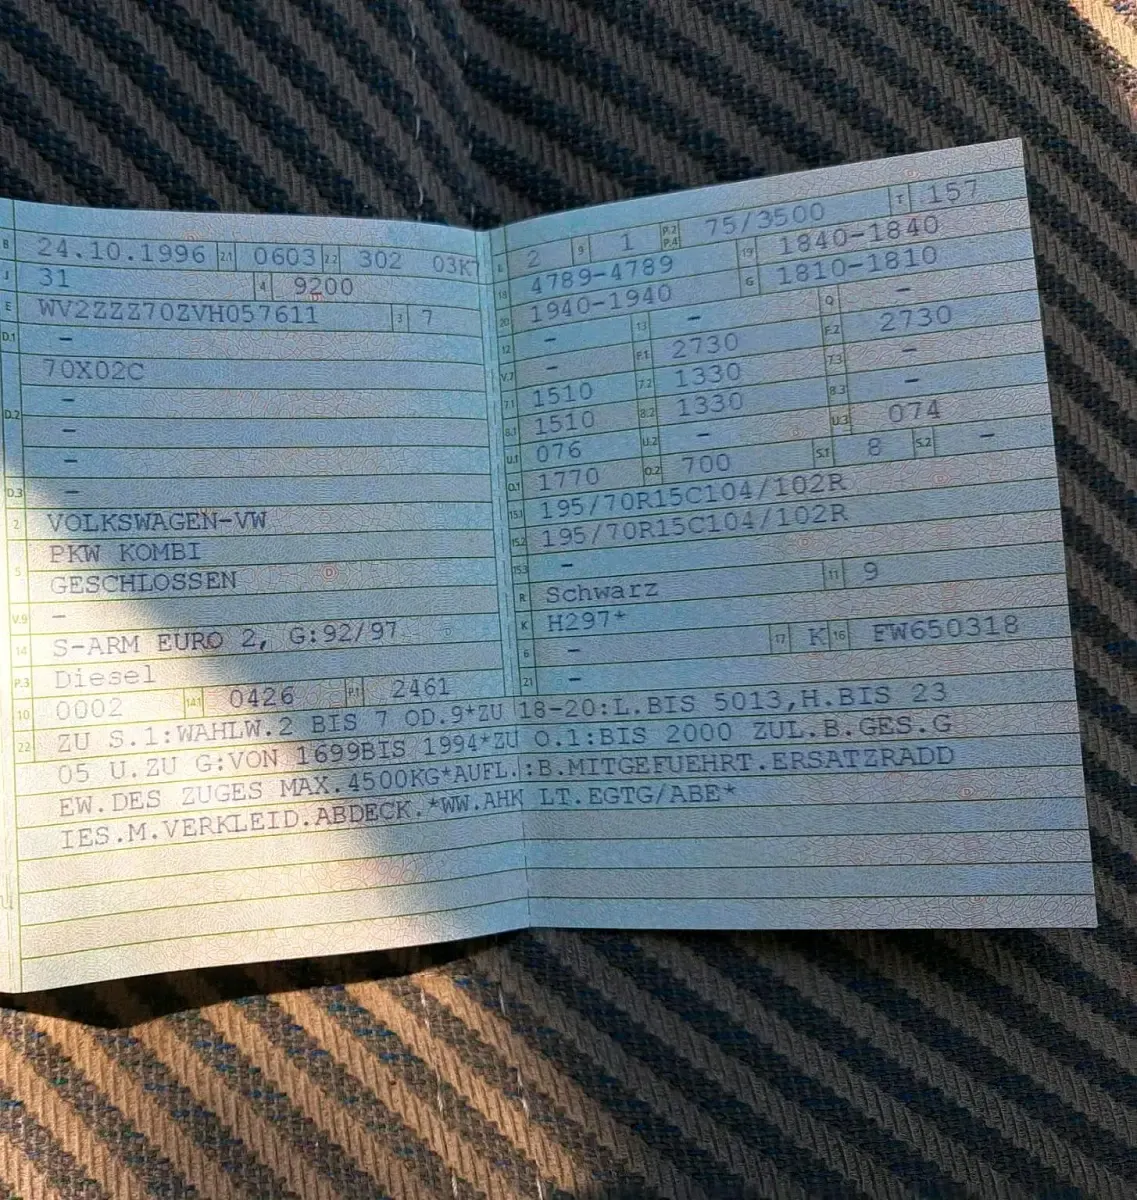 B 24.10.1996 2.1 0603 2.2 302 03K
J 31 4 9200
E WV2ZZZ70ZVH057611 3 7
D.1 –
70X02C
D.2 –
–
–
D.3 –
2 VOLKSWAGEN-VW
5 PKW KOMBI
GESCHLOSSEN
V.9 –
14 S-ARM EURO 2, G:92/97
P.3 Diesel
10 0002 14.1 0426 P.1 2461
L 2 9 1 P.2 P.4 75/3500 T 157
18 4789-4789 19 1840-1840
20 1940-1940 G 1810-1810
12 – 13 – Q –
V.7 – F.1 2730 F.2 2730
7.1 1510 7.2 1330 7.3 –
8.1 1510 8.2 1330 8.3 –
U.1 076 U.2 – U.3 074
O.1 1770 O.2 700 S.1 8 S.2 –
15.1 195/70R15C104/102R
15.2 195/70R15C104/102R
15.3 –
R Schwarz 11 9
K H297*
6 – 17 K 16 FW650318
21 –
22 ZU S.1:WAHLW.2 BIS 7 OD.9*ZU 18-20:L.BIS 5013,H.BIS 23
05 U.ZU G:VON 1699BIS 1994*ZU O.1:BIS 2000 ZUL.B.GES.G
EW.DES ZUGES MAX.4500KG*AUFL.:B.MITGEFUEHRT.ERSATZRADD
IES.M.VERKLEID.ABDECK.*WW.AHK LT.EGTG/ABE*